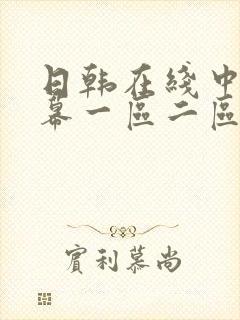 日韩在綫中
幕一區二區
實利慕尚